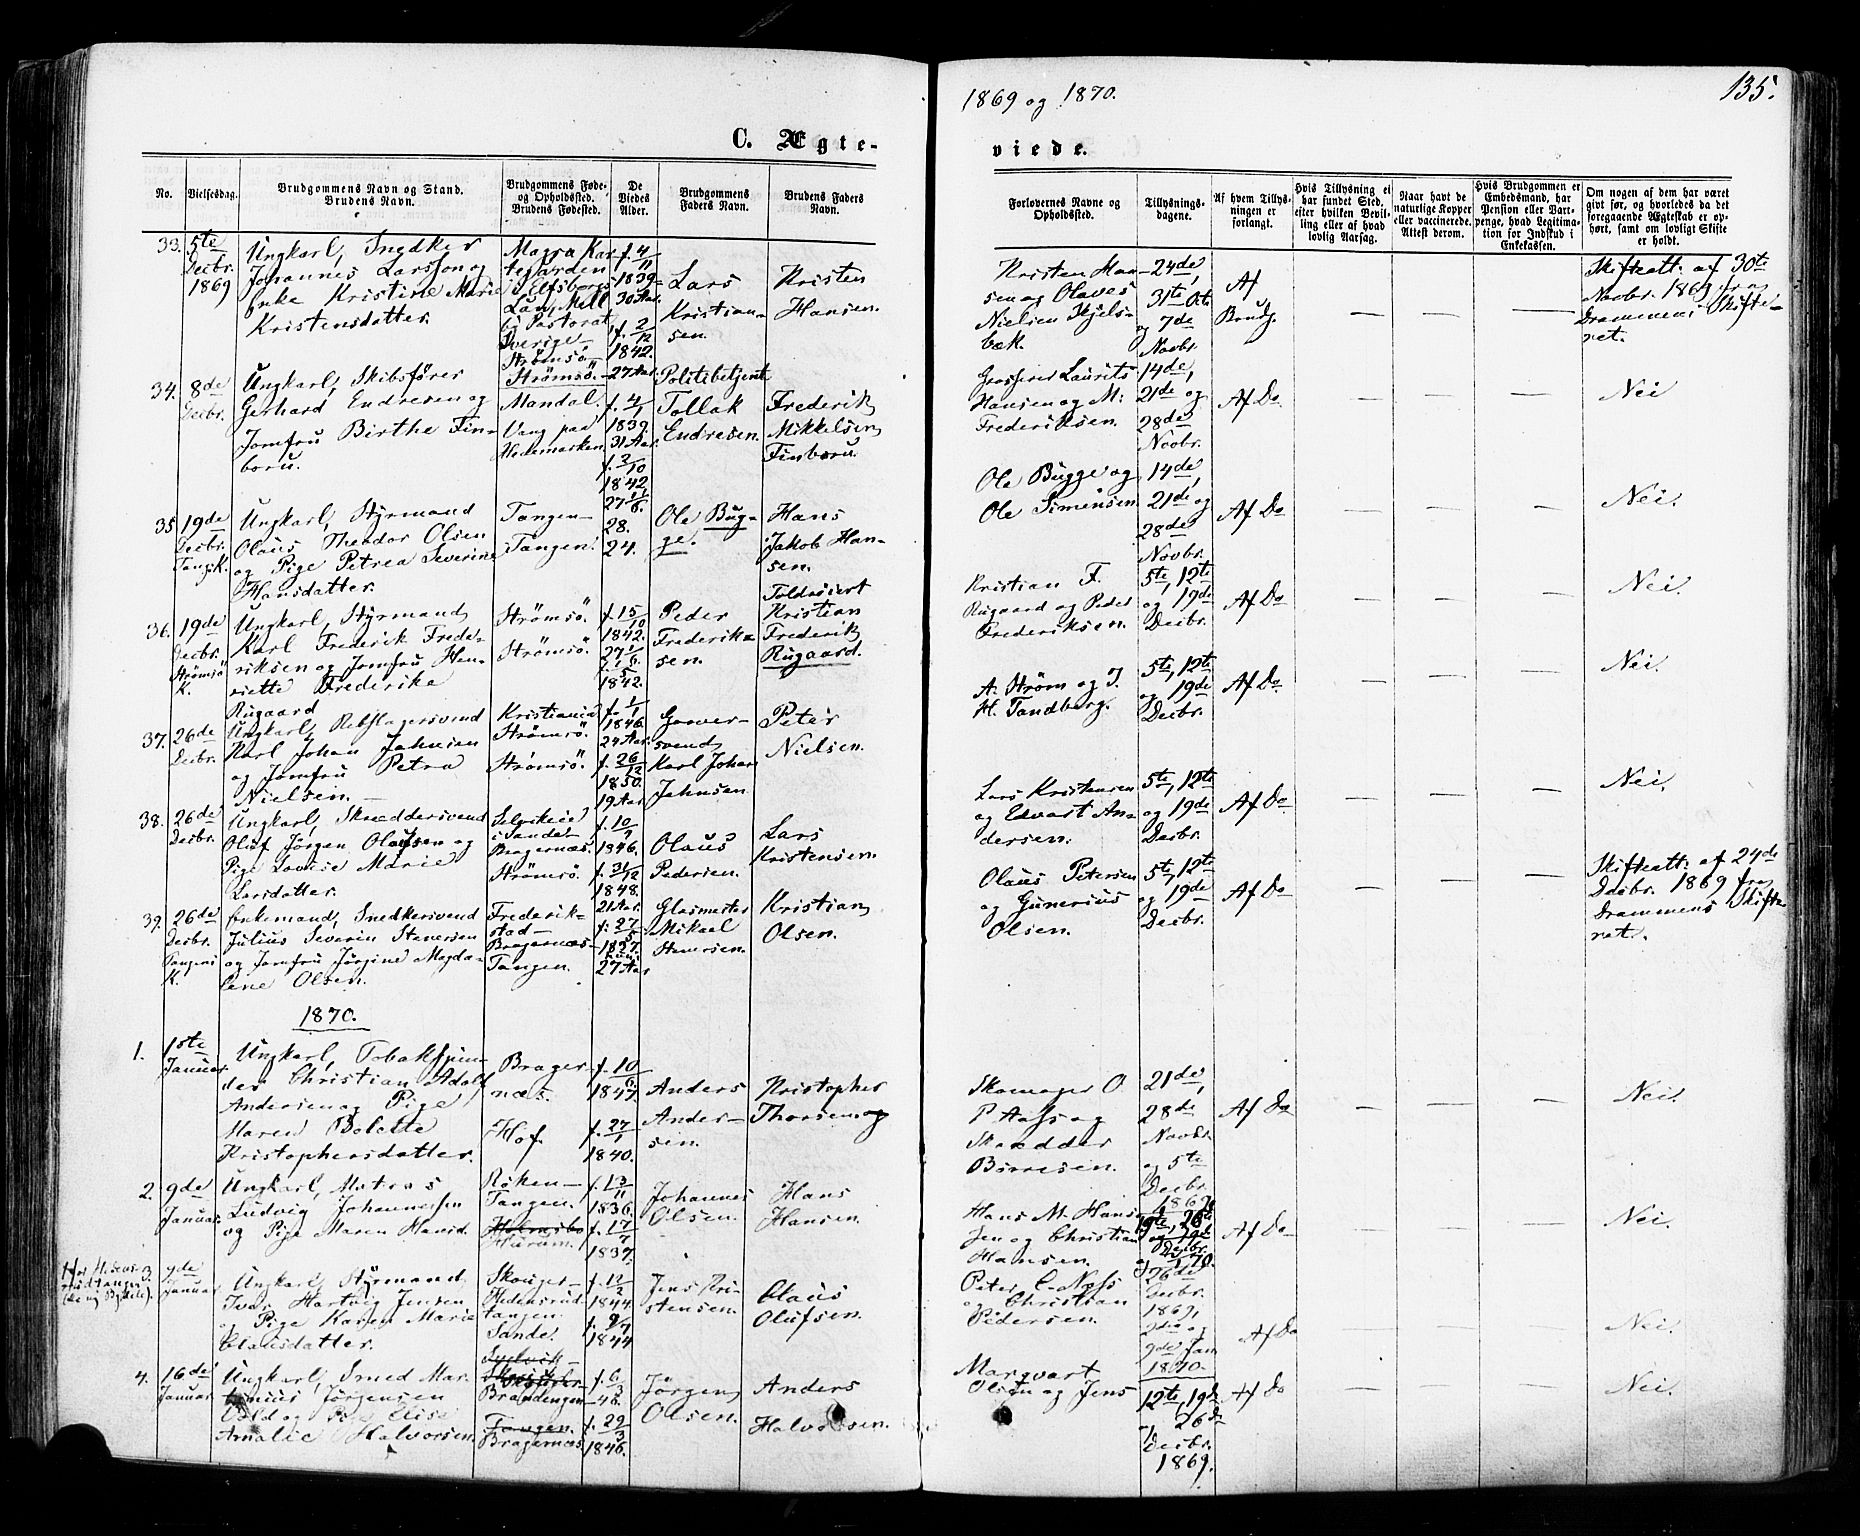 1869 og 1870.
135.
C. Ægte-
viede.
No.
Vielsesdag.
Brudgommens Navn og Stand.
Brudens Navn.
Brudgommens Føde-
og Opholdssted.
Brudens Fødested.
De
Viedes
Alder.
Brudgommens
Faders Navn.
Brudens Faders
Navn.
Forlovernes Navne og
Opholdssted.
Tillysnings-
dagene.
Af hvem Tillys-
ningen er
forlangt.
Hvis Tillysning ei
har fundet Sted,
efter hvilken Bevil-
ling eller af hvad
lovlig Aarsag.
Naar havt de
naturlige Kopper
eller vaccinerede.
Attest derom.
Hvis Brudgommen er
Embedsmand, har
Pension eller Vart-
penge, hvad Legitima-
tion for Indskud i
Enkekassen.
Om nogen af dem har været
givt før, og hvorledes da det
foregaaende Ægteskab er op-
hørt, samt om lovligt Skifte
er holdt.
33.
5te
Decbr.
1869
Ungkarl, Snedker
Johannes Larsson og
Enke Kristine Marie
Kristensdatter.
Elfsborgs
Län,
Pastorat
Sverige-
Strømsø-
f. 4/11
1839-
30 Aar.
f. 2/12
1842.
27 Aar.
Lars
Kristian-
sen.
Kristen
Hansen.
Kristen Han-
sen og Olaves
Nielsen Hjels-
bæk.
24de,
31te Oct.
og 7de
Novbr.
Af
Brudg.
—
—
—
Skifteatt: af 30te
Novbr. 1869 fra
Drammens Skifte-
ret.
34.
8de
Decbr.
Ungkarl, Skibsfører
Gerhard Endresen og
Jomfru Birthe Fin-
boru.
Strømsø.
Mandal.
Vang paa
Hedemarken.
f. 4/1
1839.
31 Aar.
f. 2/10
1842
27 1/6.
Politibetjent
Tollak
Endresen.
Frederik
Mikkelsen
Finboru.
Grosserer Laurits
Hansen og M:
Frederiksen.
14de,
21de og
28de
Novbr.
Af Do
—
—
—
Nei
35.
19de
Decbr.
Tang. K.
Ungkarl, Styrmand
Olaus Theodor Olsen
og Pige Petrea Severine
Hansdatter.
Tangen-
Tangen.
28.
24.
Ole Bug-
ge.
Hans
Jakob Han-
sen.
Ole Bugge og
Ole Simensen.
14de,
21de og
28de
Novbr.
Af Do
—
—
—
Nei.
36.
19de
Decbr.
Strømsø
K.
Ungkarl, Styrmand
Karl Frederik Frede-
riksen og Jomfru Hen-
riette Frederike
Rugaard
Strømsø.
Strømsø.
f. 15/10
1842.
27 1/6
1842.
Peder
Frederik-
sen.
Toldassist
Kristian
Frederik
Rugaard.
Kristian F.
Rugaard og Peder
Frederiksen.
5te, 12te
og 19de
Decbr.
Af Do
—
—
—
Nei.
37.
26de
Decbr.
Ungkarl, Rebslagersvend
Karl Johan Johnsen
og Jomfru Petra
Nielsen.
Kristiania
Strømsø.
Strømsø.
f. 1/1
1846.
24 Aar.
f. 26/12
1850.
19 Aar
Garver-
svend
Karl Johan
Johnsen
Peter
Nielsen.
A. Strøm og J.
H. Tandberg.
5te, 12te
og 19de
Decbr.
Af Do
—
—
—
Nei.
38.
26de
Decbr.
Ungkarl, Skræddersvend
Oluf Jörgen Olaussen og
Pige Lovise Marie
Larsdatter.
Selvikeie
i Sande-
Bragernæs.
Strømsø.
f. 10/9
1846.
f. 31/12
1848.
21 Aar.
Olaus
Pedersen.
Lars
Kristensen.
Lars Kristensen
og Edvart An-
dersen.
5te, 12te
og 19de
Decbr.
Af Do
—
—
—
Nei.
39.
26de
Decbr.
Tangens
K.
Enkemand, Snedkersvend
Julius Severin Stenersen
og Jomfru Jörgine Magda-
lene Olsen.
Frederik-
stad-
Bragernæs-
Tangen.
f. 27/5
1827.
27 Aar
Glasmester
Mikael
Stenersen.
Kristian
Olsen.
Olaus Petersen
og Gunerius
Olsen.
5te, 12te
og 19de
Decbr.
Af Do
—
—
—
Skifteatt: af 24de
Decbr. 1869 fra
Drammens Skifte-
ret.
1870.
1.
1ste
Januar
Ungkarl, Tobakspin-
der Christian Adolf
Andersen og Pige
Maren Bolette
Kristophersdatter.
Brager-
næs.
Hof.
f. 10/6
1847.
f. 27/1
1840.
Anders
Ander-
sen.
Kristopher
Thorsen
Skomager O.
P. Aass og
Skrædder
Börresen.
21de,
28de
Novbr.
og 5te
Decbr.
1869.
Af Do
—
—
—
Nei.
2.
9de
Januar.
Ungkarl, Matros
Ludvig Johannessen
og Pige Maren Hansd.
Röken-
Tangen.
Holmsbo
Hurum.
f. 13/11
1836.
f. 17/7
1837.
Johannes
Olsen.
Hans
Hansen.
Hans M. Han-
sen og Christian
Hansen.
19te, 26de
Decbr.
Af Do
—
—
—
Nei.
3.
9de
Januar
Ungkarl, Styrmand
Ivar Hartvig Jensen
og Pige Karen Marie
Clausdatter.
Skouger
Hedensrud-
tangen.
Sande.
f. 12/2
1844.
f. 9/7
1844
Jens Kri-
stensen.
Claus
Olufsen.
Peter C. Næss
og Christian
Pedersen.
26de
Decbr.
1869,
2den og
9de Jan.
1870.
Af Do
—
—
—
Nei.
4.
16de
Januar.
Ungkarl, Smed Mar-
tinius Jörgensen
Vold og Pige Elise
Amalie Halvorsen.
Selvik-
Brandengen-
Tangen.
Bragernæs.
f. 6/3
-46.
f. 29/3
1846.
Jörgen
Olsen.
Anders
Halvorsen.
Marqvart
Olsen og Jens
12te, 19de
og 26de
Decbr.
1869.
Af Do
—
—
—
Nei.